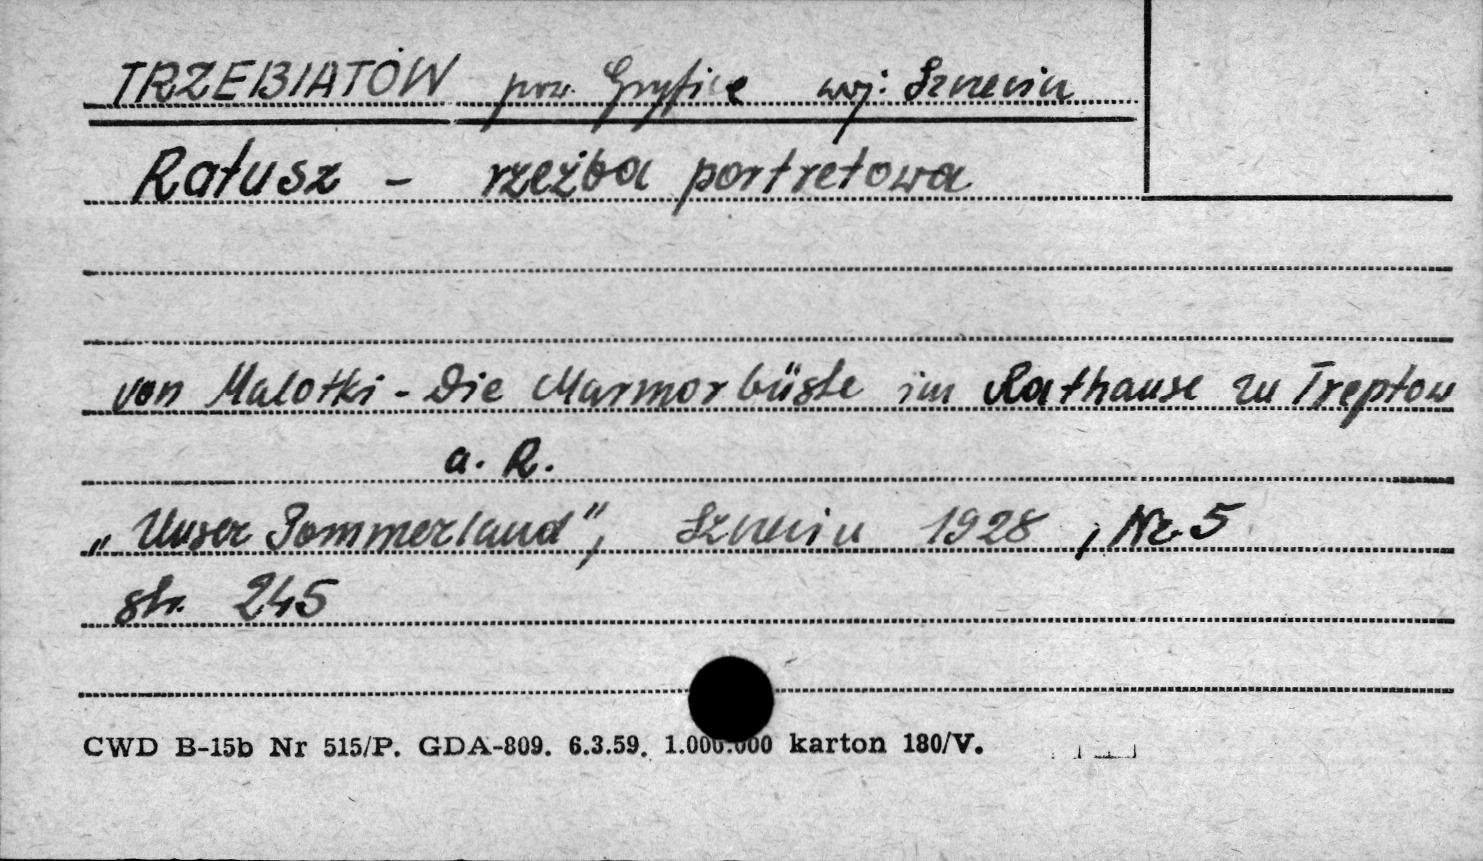 TRZEBIATÓW pow. Gryfice woj. Szczecin
Ratusz - rzeźba portretowa
von Malotki - Die Marmorbüste im Rathause zu Treptow
a. R.
„Unser Pommerland", Szczecin 1928, Nr. 5
str. 245
CWD B-15b Nr 515/P. GDA-809. 6.3.59. 1.000.000 karton 180/V.